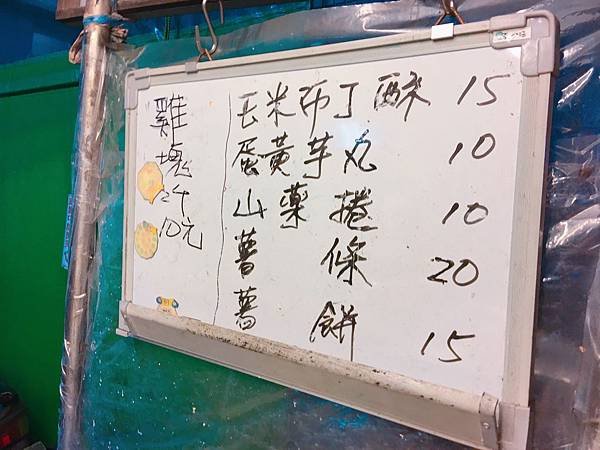 雞塊
10元
玉米布丁酥 15
蛋黃芋丸 10
山藥捲 10
薯條 20
薯餅 15